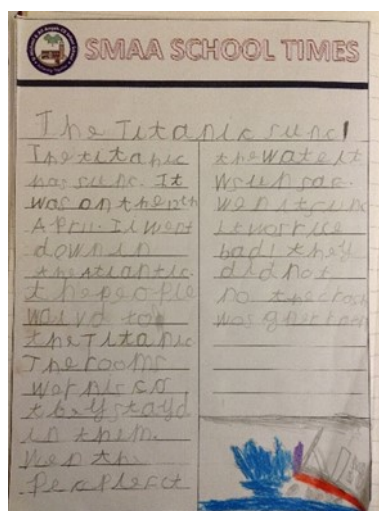 SMAA SCHOOL TIMES
The Titanic sunc!
The titanic
has sunc. It
was on the
April. It went
down in
the atlantic.
the people
to
the Titanic
The rooms
wer nis so
they stayd
in them.
Wen the
the water it
was
wen it sunc
it
bad! they
did not
no the crash
was